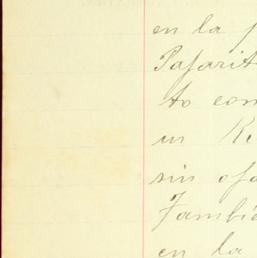 en la p
Pafarit
to com
un R
sin ofa
Tambié
en la